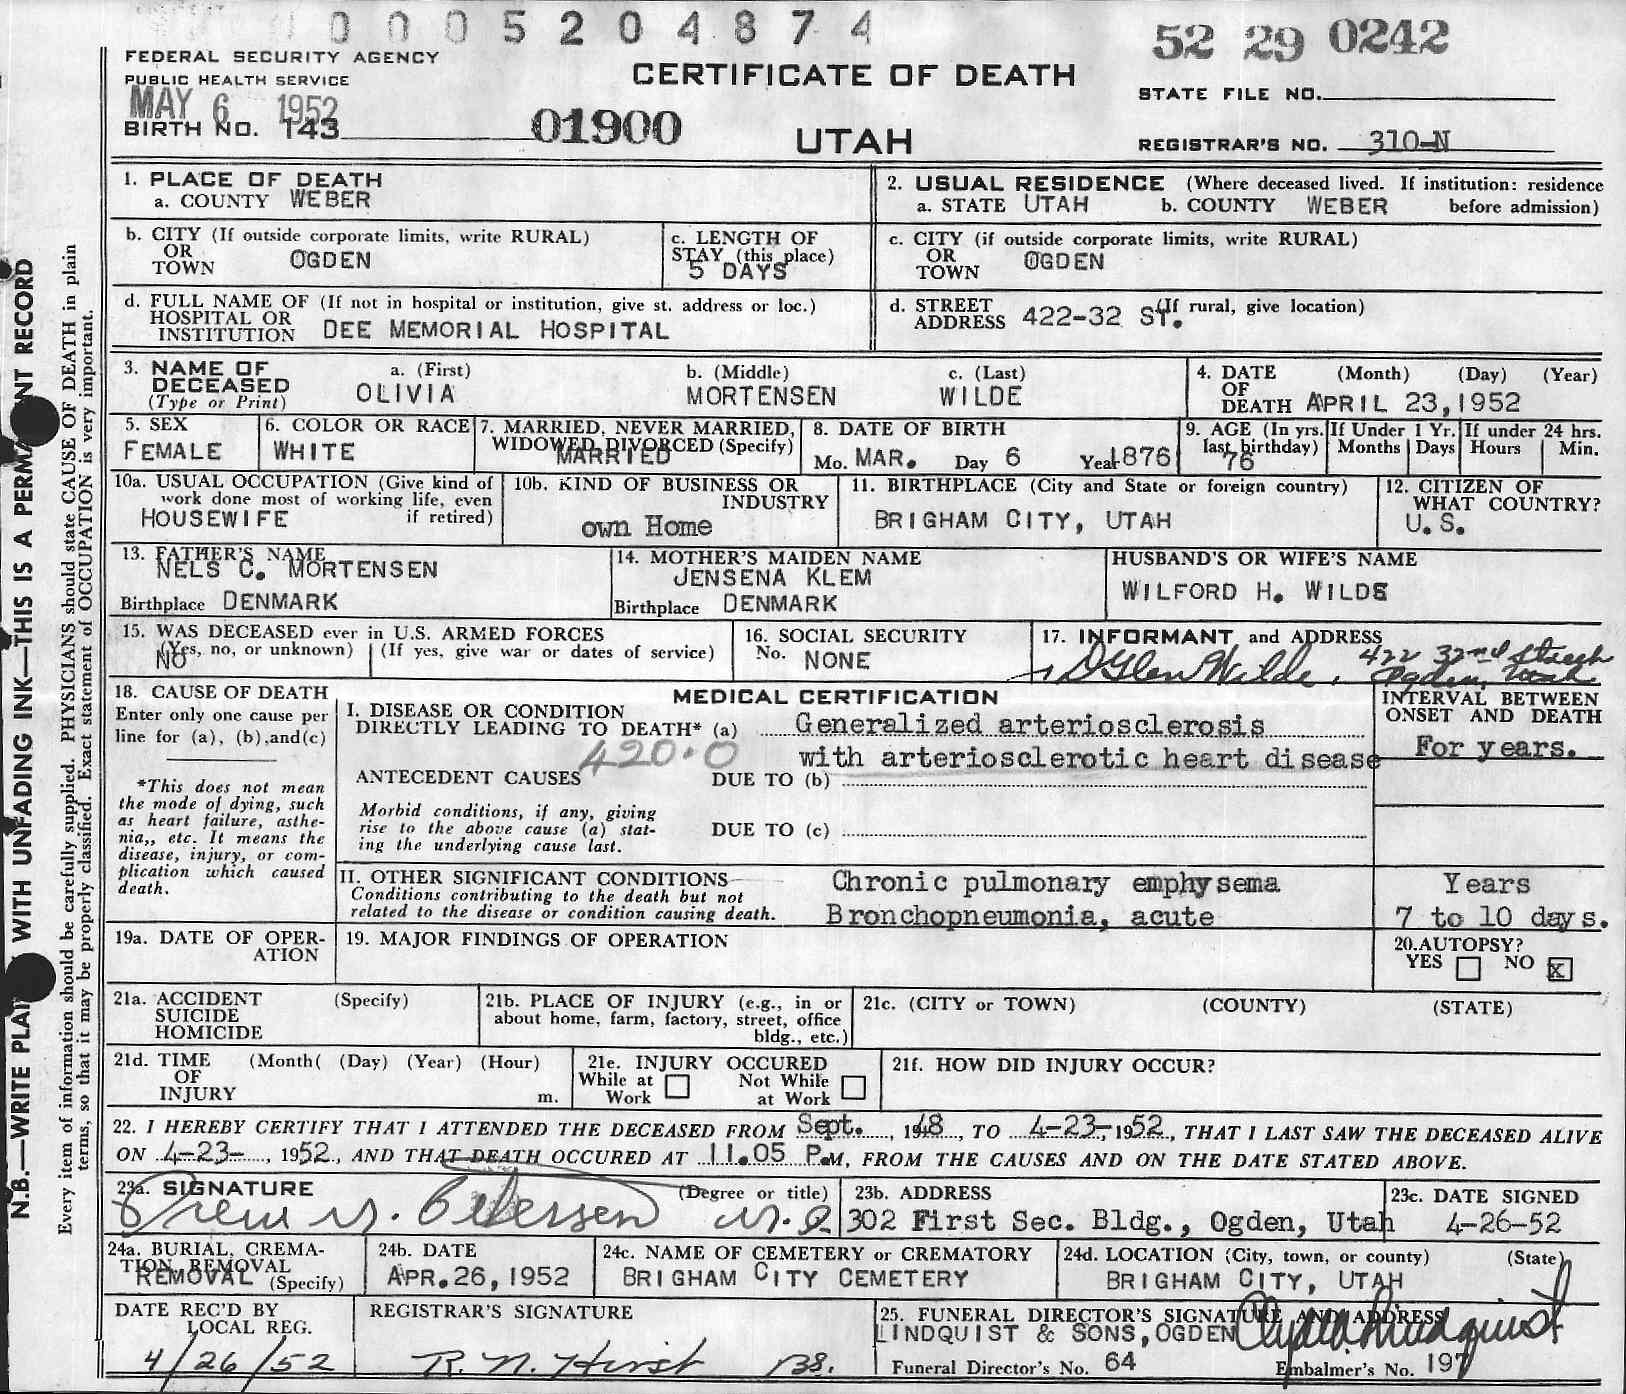 0005204874
52 29 0242
FEDERAL SECURITY AGENCY
PUBLIC HEALTH SERVICE
CERTIFICATE OF DEATH
STATE FILE NO.
MAY 6 1952
BIRTH NO. 143
01900
UTAH
REGISTRAR'S NO. 310-N
1. PLACE OF DEATH
a. COUNTY WEBER
2. USUAL RESIDENCE (Where deceased lived. If institution: residence before admission)
a. STATE UTAH b. COUNTY WEBER
b. CITY (If outside corporate limits, write RURAL)
OR
TOWN OGDEN
c. LENGTH OF
STAY (this place)
5 DAYS
c. CITY (if outside corporate limits, write RURAL)
OR
TOWN OGDEN
d. FULL NAME OF (If not in hospital or institution, give st. address or loc.)
HOSPITAL OR
INSTITUTION DEE MEMORIAL HOSPITAL
d. STREET (If rural, give location)
ADDRESS 422-32 ST.
3. NAME OF
DECEASED
(Type or Print)
a. (First)
OLIVIA
b. (Middle)
MORTENSEN
c. (Last)
WILDE
4. DATE (Month) (Day) (Year)
OF
DEATH APRIL 23, 1952
5. SEX
FEMALE
6. COLOR OR RACE
WHITE
7. MARRIED, NEVER MARRIED,
WIDOWED, DIVORCED (Specify)
MARRIED
8. DATE OF BIRTH
Mo. MAR. Day 6 Year 1876
9. AGE (In yrs. last birthday)
76
If Under 1 Yr.
Months Days
If under 24 hrs.
Hours Min.
10a. USUAL OCCUPATION (Give kind of
work done most of working life, even
if retired)
HOUSEWIFE
10b. KIND OF BUSINESS OR
INDUSTRY
own Home
11. BIRTHPLACE (City and State or foreign country)
BRIGHAM CITY, UTAH
12. CITIZEN OF
WHAT COUNTRY?
U.S.
13. FATHER'S NAME
NELS C. MORTENSEN
Birthplace DENMARK
14. MOTHER'S MAIDEN NAME
JENSENA KLEM
Birthplace DENMARK
HUSBAND'S OR WIFE'S NAME
WILFORD H. WILDE
15. WAS DECEASED ever in U.S. ARMED FORCES
(Yes, no, or unknown) (If yes, give war or dates of service)
NO
16. SOCIAL SECURITY
No. NONE
17. INFORMANT and ADDRESS
D Glen Wilde, 422 32nd Street
Ogden, Utah
18. CAUSE OF DEATH
Enter only one cause per
line for (a), (b), and (c)
*This does not mean
the mode of dying, such
as heart failure, asthe-
nia,, etc. It means the
disease, injury, or com-
plication which caused
death.
MEDICAL CERTIFICATION
I. DISEASE OR CONDITION
DIRECTLY LEADING TO DEATH* (a) Generalized arteriosclerosis
420.0 with arteriosclerotic heart disease
ANTECEDENT CAUSES DUE TO (b)
Morbid conditions, if any, giving
rise to the above cause (a) stat-
ing the underlying cause last.
DUE TO (c)
INTERVAL BETWEEN
ONSET AND DEATH
For years.
II. OTHER SIGNIFICANT CONDITIONS
Conditions contributing to the death but not
related to the disease or condition causing death.
Chronic pulmonary emphysema Years
Bronchopneumonia, acute 7 to 10 days.
19a. DATE OF OPER-
ATION
19. MAJOR FINDINGS OF OPERATION
20. AUTOPSY?
YES NO X
21a. ACCIDENT (Specify)
SUICIDE
HOMICIDE
21b. PLACE OF INJURY (e.g., in or
about home, farm, factory, street, office
bldg., etc.)
21c. (CITY or TOWN) (COUNTY) (STATE)
21d. TIME (Month( (Day) (Year) (Hour)
OF
INJURY m.
21e. INJURY OCCURED
While at Work Not While at Work
21f. HOW DID INJURY OCCUR?
22. I HEREBY CERTIFY THAT I ATTENDED THE DECEASED FROM Sept., 1948, TO 4-23-, 1952, THAT I LAST SAW THE DECEASED ALIVE
ON 4-23-, 1952, AND THAT DEATH OCCURED AT 11.05 P.M, FROM THE CAUSES AND ON THE DATE STATED ABOVE.
23a. SIGNATURE (Degree or title)
Petersen M.D.
23b. ADDRESS
302 First Sec. Bldg., Ogden, Utah
23c. DATE SIGNED
4-26-52
24a. BURIAL, CREMA-
TION, REMOVAL
REMOVAL (Specify)
24b. DATE
APR. 26, 1952
24c. NAME OF CEMETERY or CREMATORY
BRIGHAM CITY CEMETERY
24d. LOCATION (City, town, or county) (State)
BRIGHAM CITY, UTAH
DATE REC'D BY
LOCAL REG.
4/26/52
REGISTRAR'S SIGNATURE
R. N. Hirst BB.
25. FUNERAL DIRECTOR'S SIGNATURE AND ADDRESS
LINDQUIST & SONS, OGDEN Lindquist
Funeral Director's No. 64 Embalmer's No. 197
N.B.—WRITE PLAINLY WITH UNFADING INK—THIS IS A PERMANENT RECORD
Every item of information should be carefully supplied. PHYSICIANS should state CAUSE OF DEATH in plain
terms, so that it may be properly classified. Exact statement of OCCUPATION is very important.